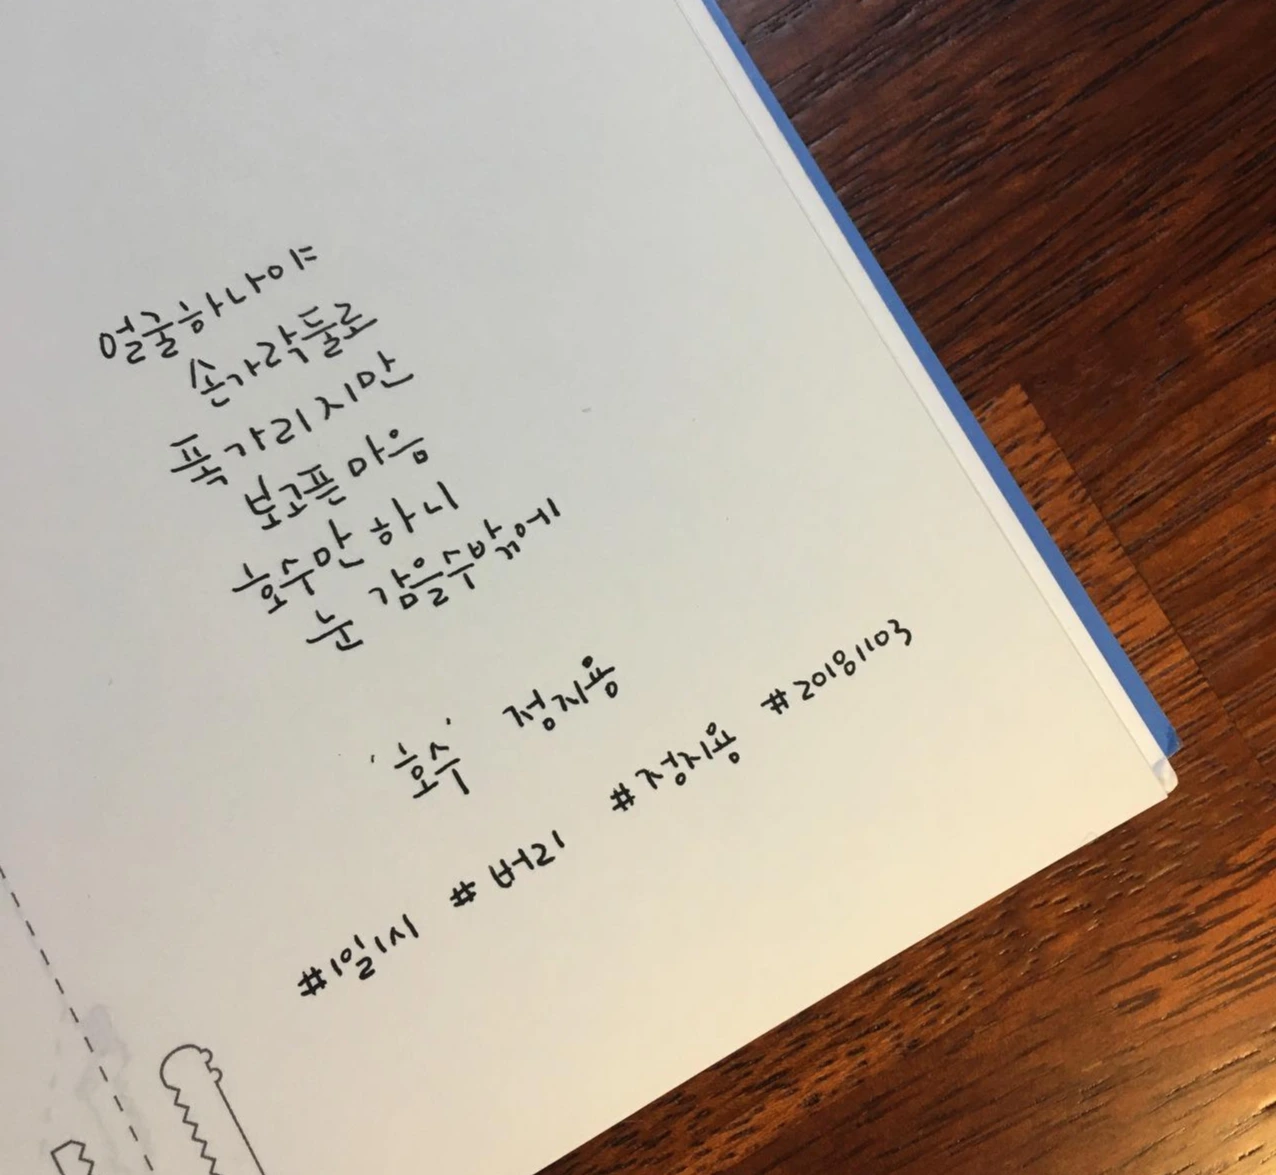 얼굴하나야
손가락둘로
폭가리지만
보고픈마음
호수만하니
눈 감을수밖에
'호수' 정지용
#1일1시 #버리 #정지용 #20181103